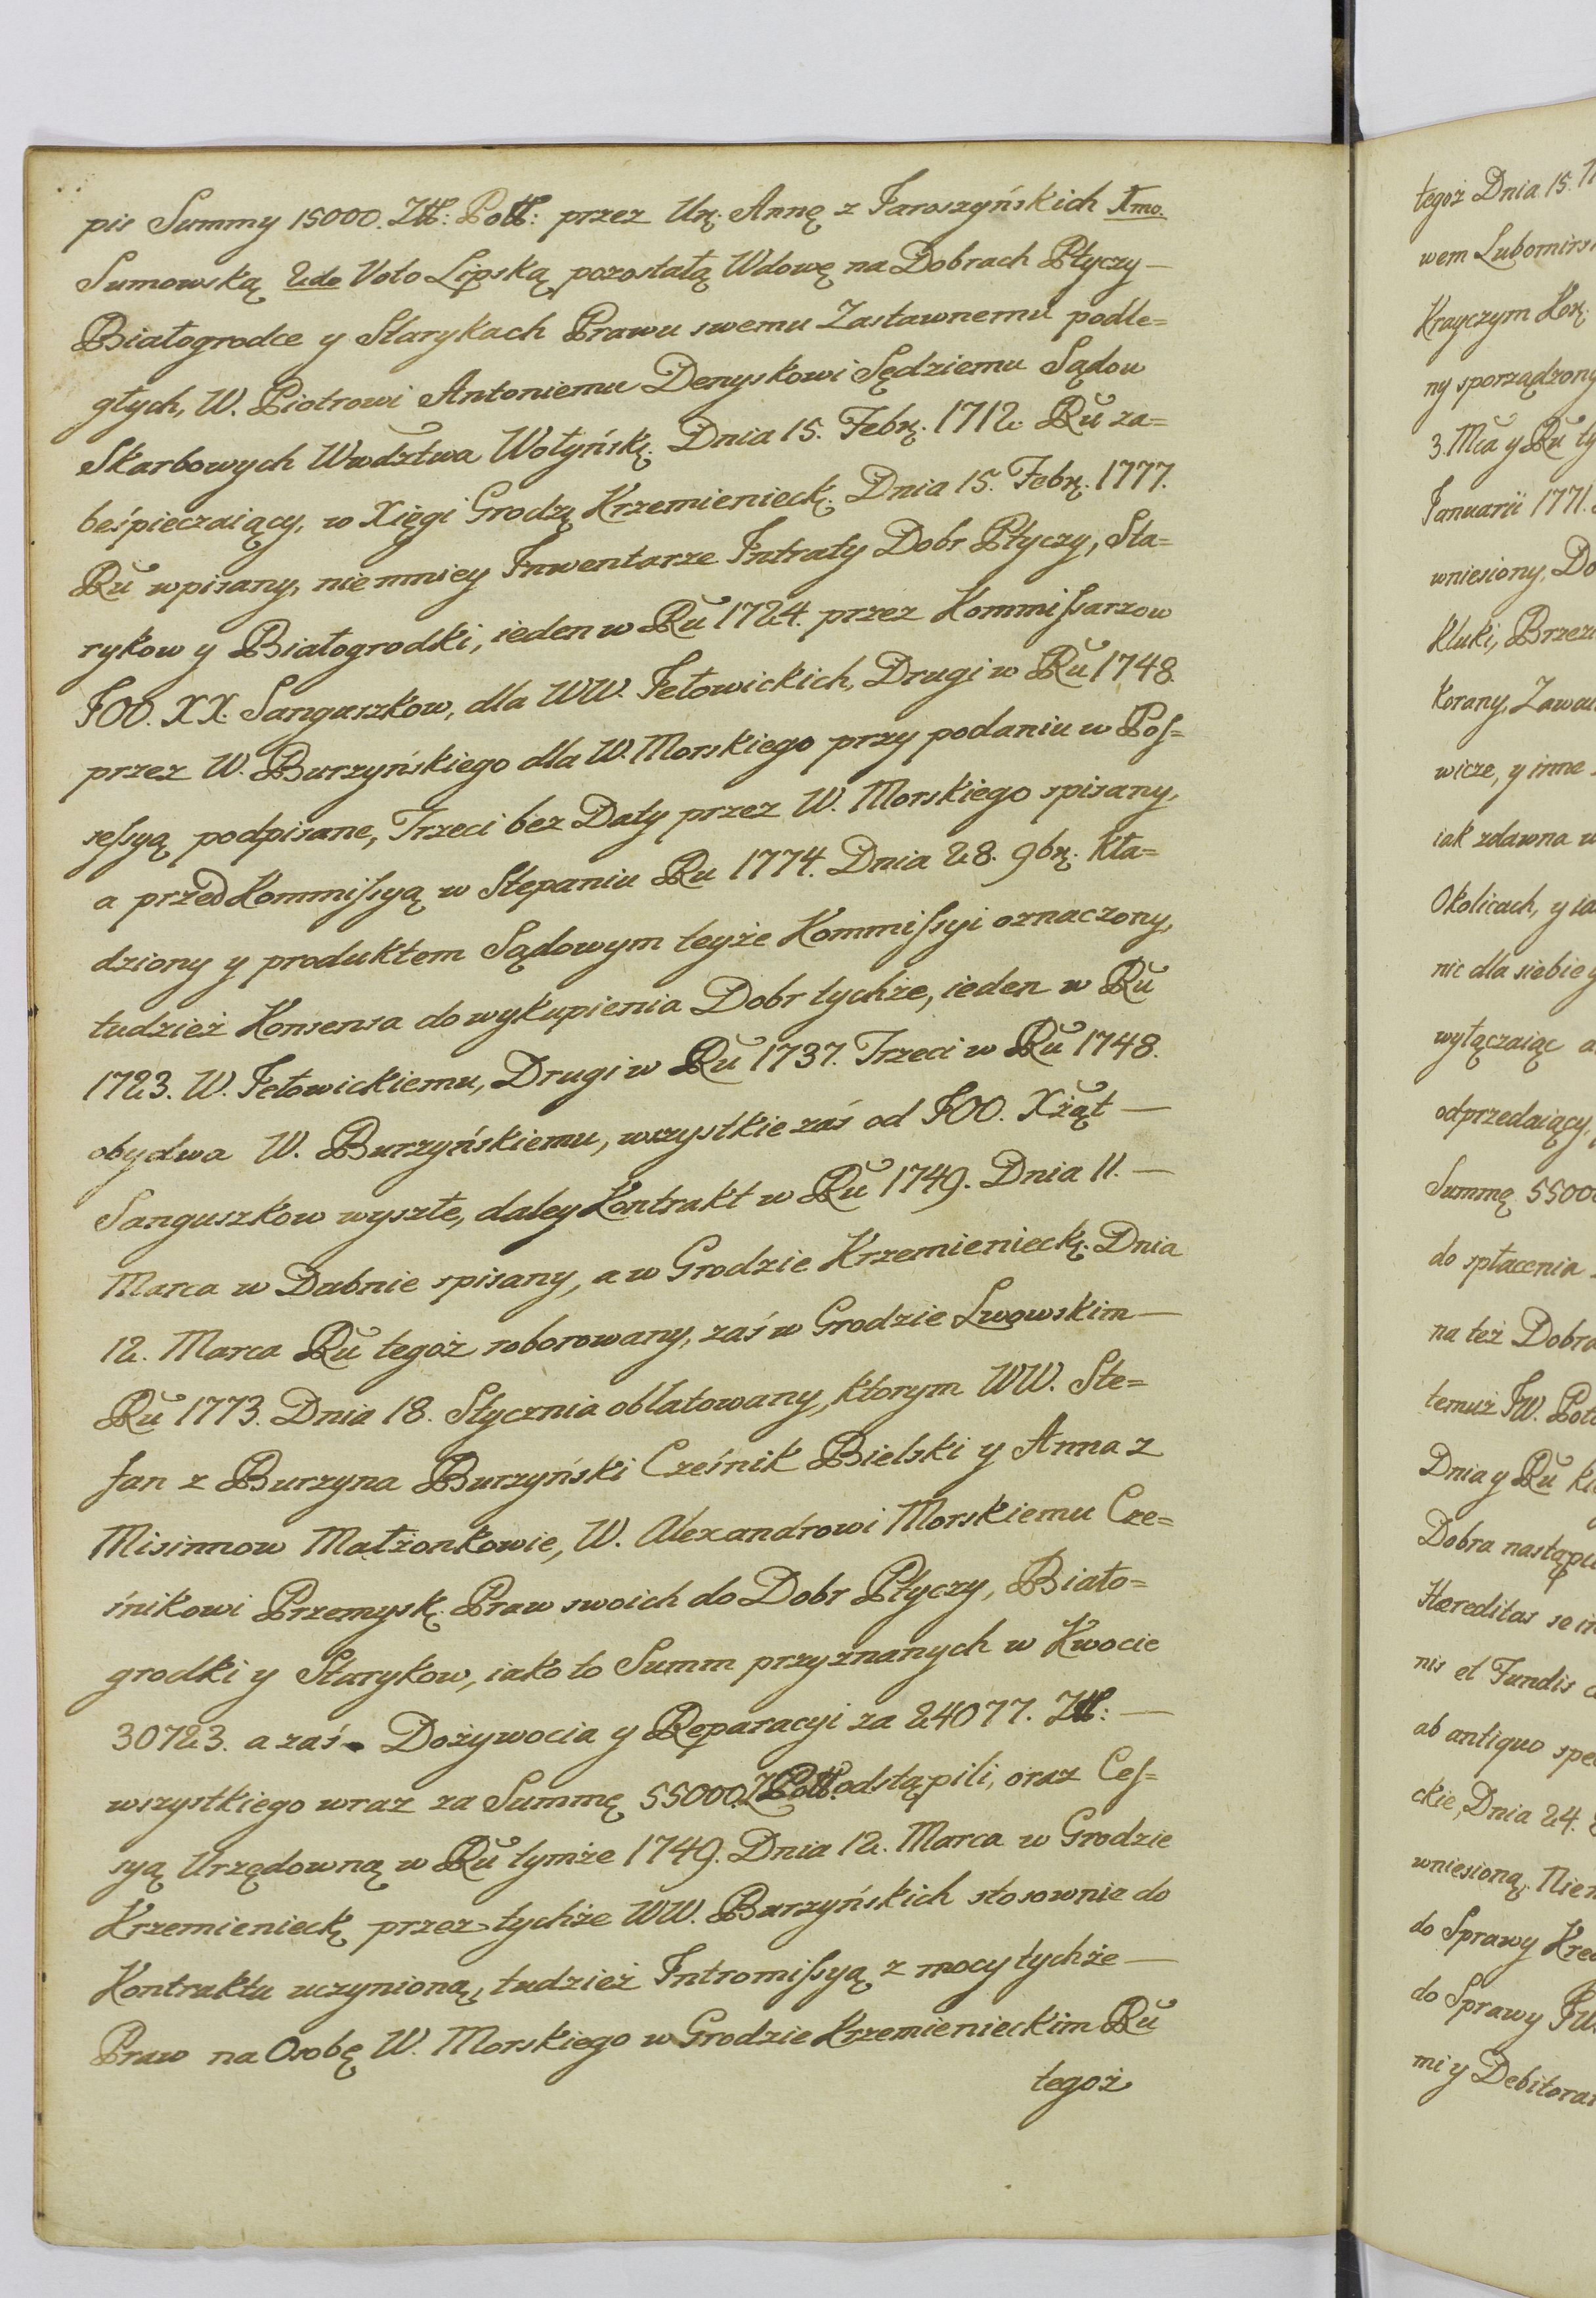 pis Summy 15000. Złł: Poll: przez Urꝫ. Annę z Jaroszyńskich 1mo.
Sumowską 2do Voto Lipską pozostałą Wdowę na Dobrach Ptyczy —
Białogrodce y Starykach Prawu swemu Zastawnemu podle=
głych, W. Piotrowi Antoniemu Denyskowi Sędziemu Sądow
Skarbowych Wwdztwa Wołyńskꝫ. Dnia 15. Febrꝫ. 1712. Ru za=
beśpieczaiący, w Xięgi Grodzą Krzemienieckꝫ. Dnia 15. Febrꝫ. 1777.
Ru wpisany, niemniey Inwentarze Intraty Dobr Ptyczy, Sta=
rykow y Białogrodki, ieden w Ru 1724. przez Kommiſsarzow
JOO. XX. Sanguszkow, dla WW. Jełowickich, Drugi w Ru 1748.
przez W. Burzyńskiego dla W. Morskiego przy podaniu w Poſ=
seſsyą podpisane, Trzeci bez Daty przez W. Morskiego spisany,
a przed Kommiſsyą w Stepaniu Ru 1774. Dnia 28. 9brꝫ. kła=
dziony y produktem Sądowym teyże Kommiſsyi oznaczony,
tudzież Konsensa do wykupienia Dobr tychże, ieden w Ru
1723. W. Jełowickiemu, Drugi w Ru 1737. Trzeci w Ru 1748.
obydwa W. Burzyńskiemu, wszystkie zaś od JOO. Xżąt —
Sanguszkow wyszłe, daley Kontrakt w Ru 1749. Dnia 11. —
Marca w Dubnie spisany, a w Grodzie Krzemienieckꝫ. Dnia
12. Marca Ru tegoż roborowany, zaś w Grodzie Lwowskim —
Ru 1773. Dnia 18. Stycznia oblatowany, ktorym WW. Ste=
fan z Burzyna Burzyński Cześnik Bielski y Anna z
Misinnow Małżonkowie, W. Alexandrowi Morskiemu Cze=
śnikowi Przemyskꝫ. Praw swoich do Dobr Ptyczy, Biało=
grodki y Starykow, iako to Summ przyznanych w Kwocie
30723. a zaś Dożywocia y Reparacyi za 24077. Złł: —
wszystkiego wraz za Summę 55000. Z Poll. odstąpili, oraz Ceſ=
syą Urzędowną w Ru tymże 1749. Dnia 12. Marca w Grodzie
Krzemienieckꝫ przez tychże WW. Burzyńskich stosownie do
Kontraktu uczynioną, tudzież Intromiſsyą z mocy tychże —
Praw na Osobę W. Morskiego w Grodzie Krzemienieckim Ru
tegoż
tegoż Dnia 15.
wem Lubomirs
Krayczym Korꝫ.
ny sporządzony
3. Mca y Ru ty
Januarii 1771.
wniesiony, Do
Kluki, Brzez
Korany, Zawa
wicze, y inne
iak zdawna w
Okolicach, y ia
nic dla siebie y
wyłączaiąc a
odprzedaiący,
Summę 5500
do spłacenia
na też Dobra
temuż JW. Poto
Dnia y Ru
Dobra nastąpi
Hæreditas se in
nis et Fundis
ab antiquo spe
ckie, Dnia 24.
wniesioną. Nie
do Sprawy Kre
do Sprawy JW
mi y Debitora